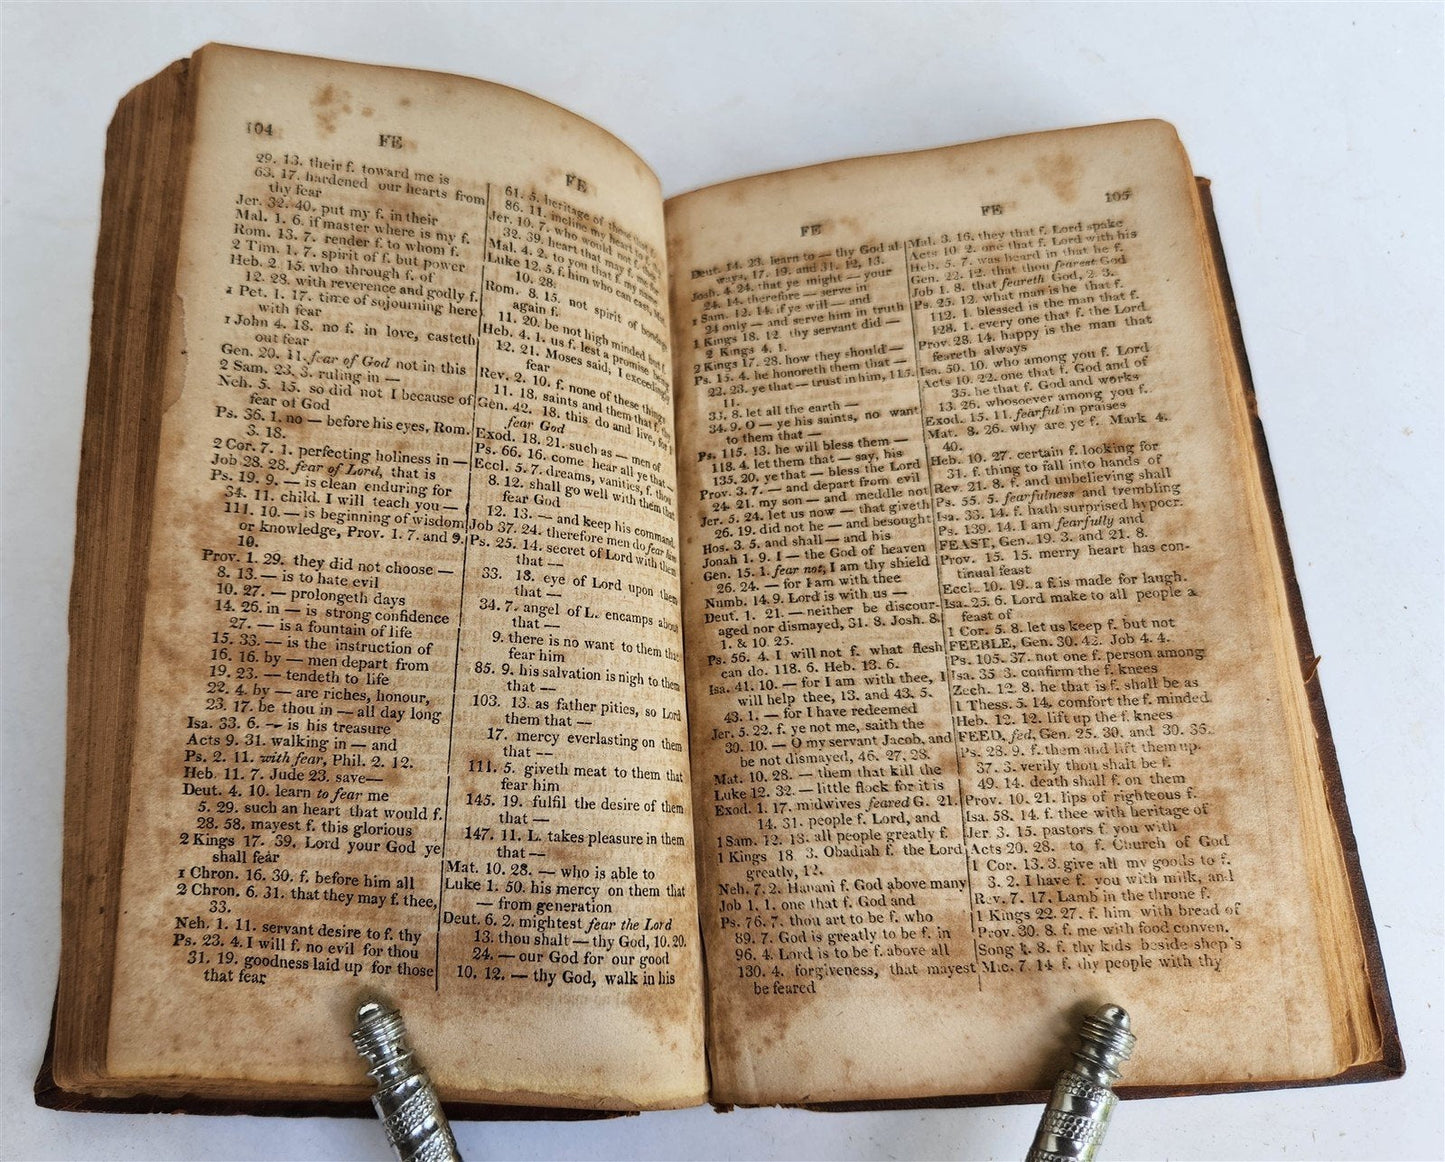 104
FE
29. 13. their f. toward me is
63. 17. hardened our hearts from
thy fear
Jer. 32. 40. put my f. in their
Mal. 1. 6. if master where is my f.
Rom. 13. 7. render f. to whom f.
2 Tim. 1. 7. spirit of f. but power
Heb. 2. 15. who through f. of
12. 28. with reverence and godly f.
1 Pet. 1. 17. time of sojourning here
with fear
1 John 4. 18. no f. in love, casteth
out fear
Gen. 20. 11. fear of God not in this
2 Sam. 23. 3. ruling in —
Neh. 5. 15. so did not I because of
fear of God
Ps. 36. 1. no — before his eyes, Rom.
3. 18.
2 Cor. 7. 1. perfecting holiness in —
Job 28. 28. fear of Lord, that is
Ps. 19. 9. — is clean enduring for
34. 11. child. I will teach you —
111. 10. — is beginning of wisdom
or knowledge, Prov. 1. 7. and 9.
10.
Prov. 1. 29. they did not choose —
8. 13. — is to hate evil
10. 27. — prolongeth days
14. 26. in — is strong confidence
27. — is a fountain of life
15. 33. — is the instruction of
16. 16. by — men depart from
19. 23. — tendeth to life
22. 4. by — are riches, honour,
23. 17. be thou in — all day long
Isa. 33. 6. — is his treasure
Acts 9. 31. walking in — and
Ps. 2. 11. with fear, Phil. 2. 12.
Heb. 11. 7. Jude 23. save—
Deut. 4. 10. learn to fear me
5. 29. such an heart that would f.
28. 58. mayest f. this glorious
2 Kings 17. 39. Lord your God ye
shall fear
1 Chron. 16. 30. f. before him all
2 Chron. 6. 31. that they may f. thee,
33.
Neh. 1. 11. servant desire to f. thy
Ps. 23. 4. I will f. no evil for thou
31. 19. goodness laid up for those
that fear
FE
61. 5. heritage of those that f.
86. 11. incline my heart to f.
Jer. 10. 7. who would not f. thee
32. 39. heart that may f. me for
Mal. 4. 2. to you that f. my name
Luke 12. 5. f. him who can cast, Mat.
10. 28.
Rom. 8. 15. not spirit of bondage
again f.
11. 20. be not high minded but f.
Heb. 4. 1. us f. lest a promise being
12. 21. Moses said, I exceedingly
fear
Rev. 2. 10. f. none of these things
11. 18. saints and them that f.
Gen. 42. 18. this do and live, for I
fear God
Exod. 18. 21. such as — men of
Ps. 66. 16. come hear all ye that —
Eccl. 5. 7. dreams, vanities, f. thou
8. 12. shall go well with them that
fear God
12. 13. — and keep his command.
Job 37. 24. therefore men do fear him
Ps. 25. 14. secret of Lord with them
that —
33. 18. eye of Lord upon them
that —
34. 7. angel of L. encamps about
that —
9. there is no want to them that
fear him
85. 9. his salvation is nigh to them
that —
103. 13. as father pities, so Lord
them that —
17. mercy everlasting on them
that —
111. 5. giveth meat to them that
fear him
145. 19. fulfil the desire of them
that —
147. 11. L. takes pleasure in them
that —
Mat. 10. 28. — who is able to
Luke 1. 50. his mercy on them that
— from generation
Deut. 6. 2. mightest fear the Lord
13. thou shalt — thy God, 10. 20.
24. — our God for our good
10. 12. — thy God, walk in his
FE
Deut. 14. 23. learn to — thy God al
ways, 17. 19. and 31. 12, 13.
Josh. 4. 24. that ye might — your
24. 14. therefore — serve in
1 Sam. 12. 14. if ye will — and
24 only — and serve him in truth
1 Kings 18. 12. thy servant did —
2 Kings 4. 1.
2 Kings 17. 28. how they should —
Ps. 15. 4. he honoreth them that —
22. 23. ye that — trust in him, 115.
11.
33. 8. let all the earth —
34. 9. O — ye his saints, no want
to them that —
Ps. 115. 13. he will bless them —
118. 4. let them that — say, his
135. 20. ye that — bless the Lord
Prov. 3. 7. — and depart from evil
24. 21. my son — and meddle not
Jer. 5. 24. let us now — that giveth
26. 19. did not he — and besought
Hos. 3. 5. and shall — and his
Jonah 1. 9. I — the God of heaven
Gen. 15. 1. fear not, I am thy shield
26. 24. — for I am with thee
Numb. 14. 9. Lord is with us —
Deut. 1. 21. — neither be discour-
aged nor dismayed, 31. 8. Josh. 8.
1. & 10. 25.
Ps. 56. 4. I will not f. what flesh
can do. 118. 6. Heb. 13. 6.
Isa. 41. 10. — for I am with thee, I
will help thee, 13. and 43. 5.
43. 1. — for I have redeemed
Jer. 5. 22. f. ye not me, saith the
30. 10. — O my servant Jacob, and
be not dismayed, 46. 27, 28.
Mat. 10. 28. — them that kill the
Luke 12. 32. — little flock for it is
Exod. 1. 17. midwives feared G. 21.
14. 31. people f. Lord, and
1 Sam. 12. 18. all people greatly f.
1 Kings 18. 3. Obadiah f. the Lord
greatly, 12.
Neh. 7. 2. Hanani f. God above many
Job 1. 1. one that f. God and
Ps. 76. 7. thou art to be f. who
89. 7. God is greatly to be f. in
96. 4. Lord is to be f. above all
130. 4. forgiveness, that mayest
be feared
FE
105
Mal. 3. 16. they that f. Lord spake
Acts 10. 2. one that f. Lord with his
Heb. 5. 7. was heard in that he f.
Gen. 22. 12. that thou fearest God
Job 1. 8. that feareth God, 2. 3.
Ps. 25. 12. what man is he that f.
112. 1. blessed is the man that f.
128. 1. every one that f. the Lord
Prov. 28. 14. happy is the man that
feareth always
Isa. 50. 10. who among you f. Lord
Acts 10. 22. one that f. God and of
35. he that f. God and works
13. 26. whosoever among you f.
Exod. 15. 11. fearful in praises
Mat. 8. 26. why are ye f. Mark 4.
40.
Heb. 10. 27. certain f. looking for
31. f. thing to fall into hands of
Rev. 21. 8. f. and unbelieving shall
Ps. 55. 5. fearfulness and trembling
Isa. 33. 14. f. hath surprised hypocr.
Ps. 139. 14. I am fearfully and
FEAST, Gen. 19. 3. and 21. 8.
Prov. 15. 15. merry heart has con-
tinual feast
Eccl. 10. 19. a f. is made for laugh.
Isa. 25. 6. Lord make to all people a
feast of
1 Cor. 5. 8. let us keep f. but not
FEEBLE, Gen. 30. 42. Job 4. 4.
Ps. 105. 37. not one f. person among
Isa. 35 3. confirm the f. knees
Zech. 12. 8. he that is f. shall be as
1 Thess. 5. 14. comfort the f. minded.
Heb. 12. 12. lift up the f. knees
FEED, fed, Gen. 25. 30. and 30. 36.
Ps. 28. 9. f. them and lift them up.
37. 3. verily thou shalt be f.
49. 14. death shall f. on them
Prov. 10. 21. lips of righteous f.
Isa. 58. 14. f. thee with heritage of
Jer. 3. 15. pastors f. you with
Acts 20. 28. to f. Church of God
1 Cor. 13. 3. give all my goods to f.
3. 2. I have f. you with milk, and
Rev. 7. 17. Lamb in the throne f.
1 Kings 22. 27. f. him with bread of
Prov. 30. 8. f. me with food conven.
Song 1. 8. f. thy kids beside shep's
Mic. 7. 14 f. thy people with thy